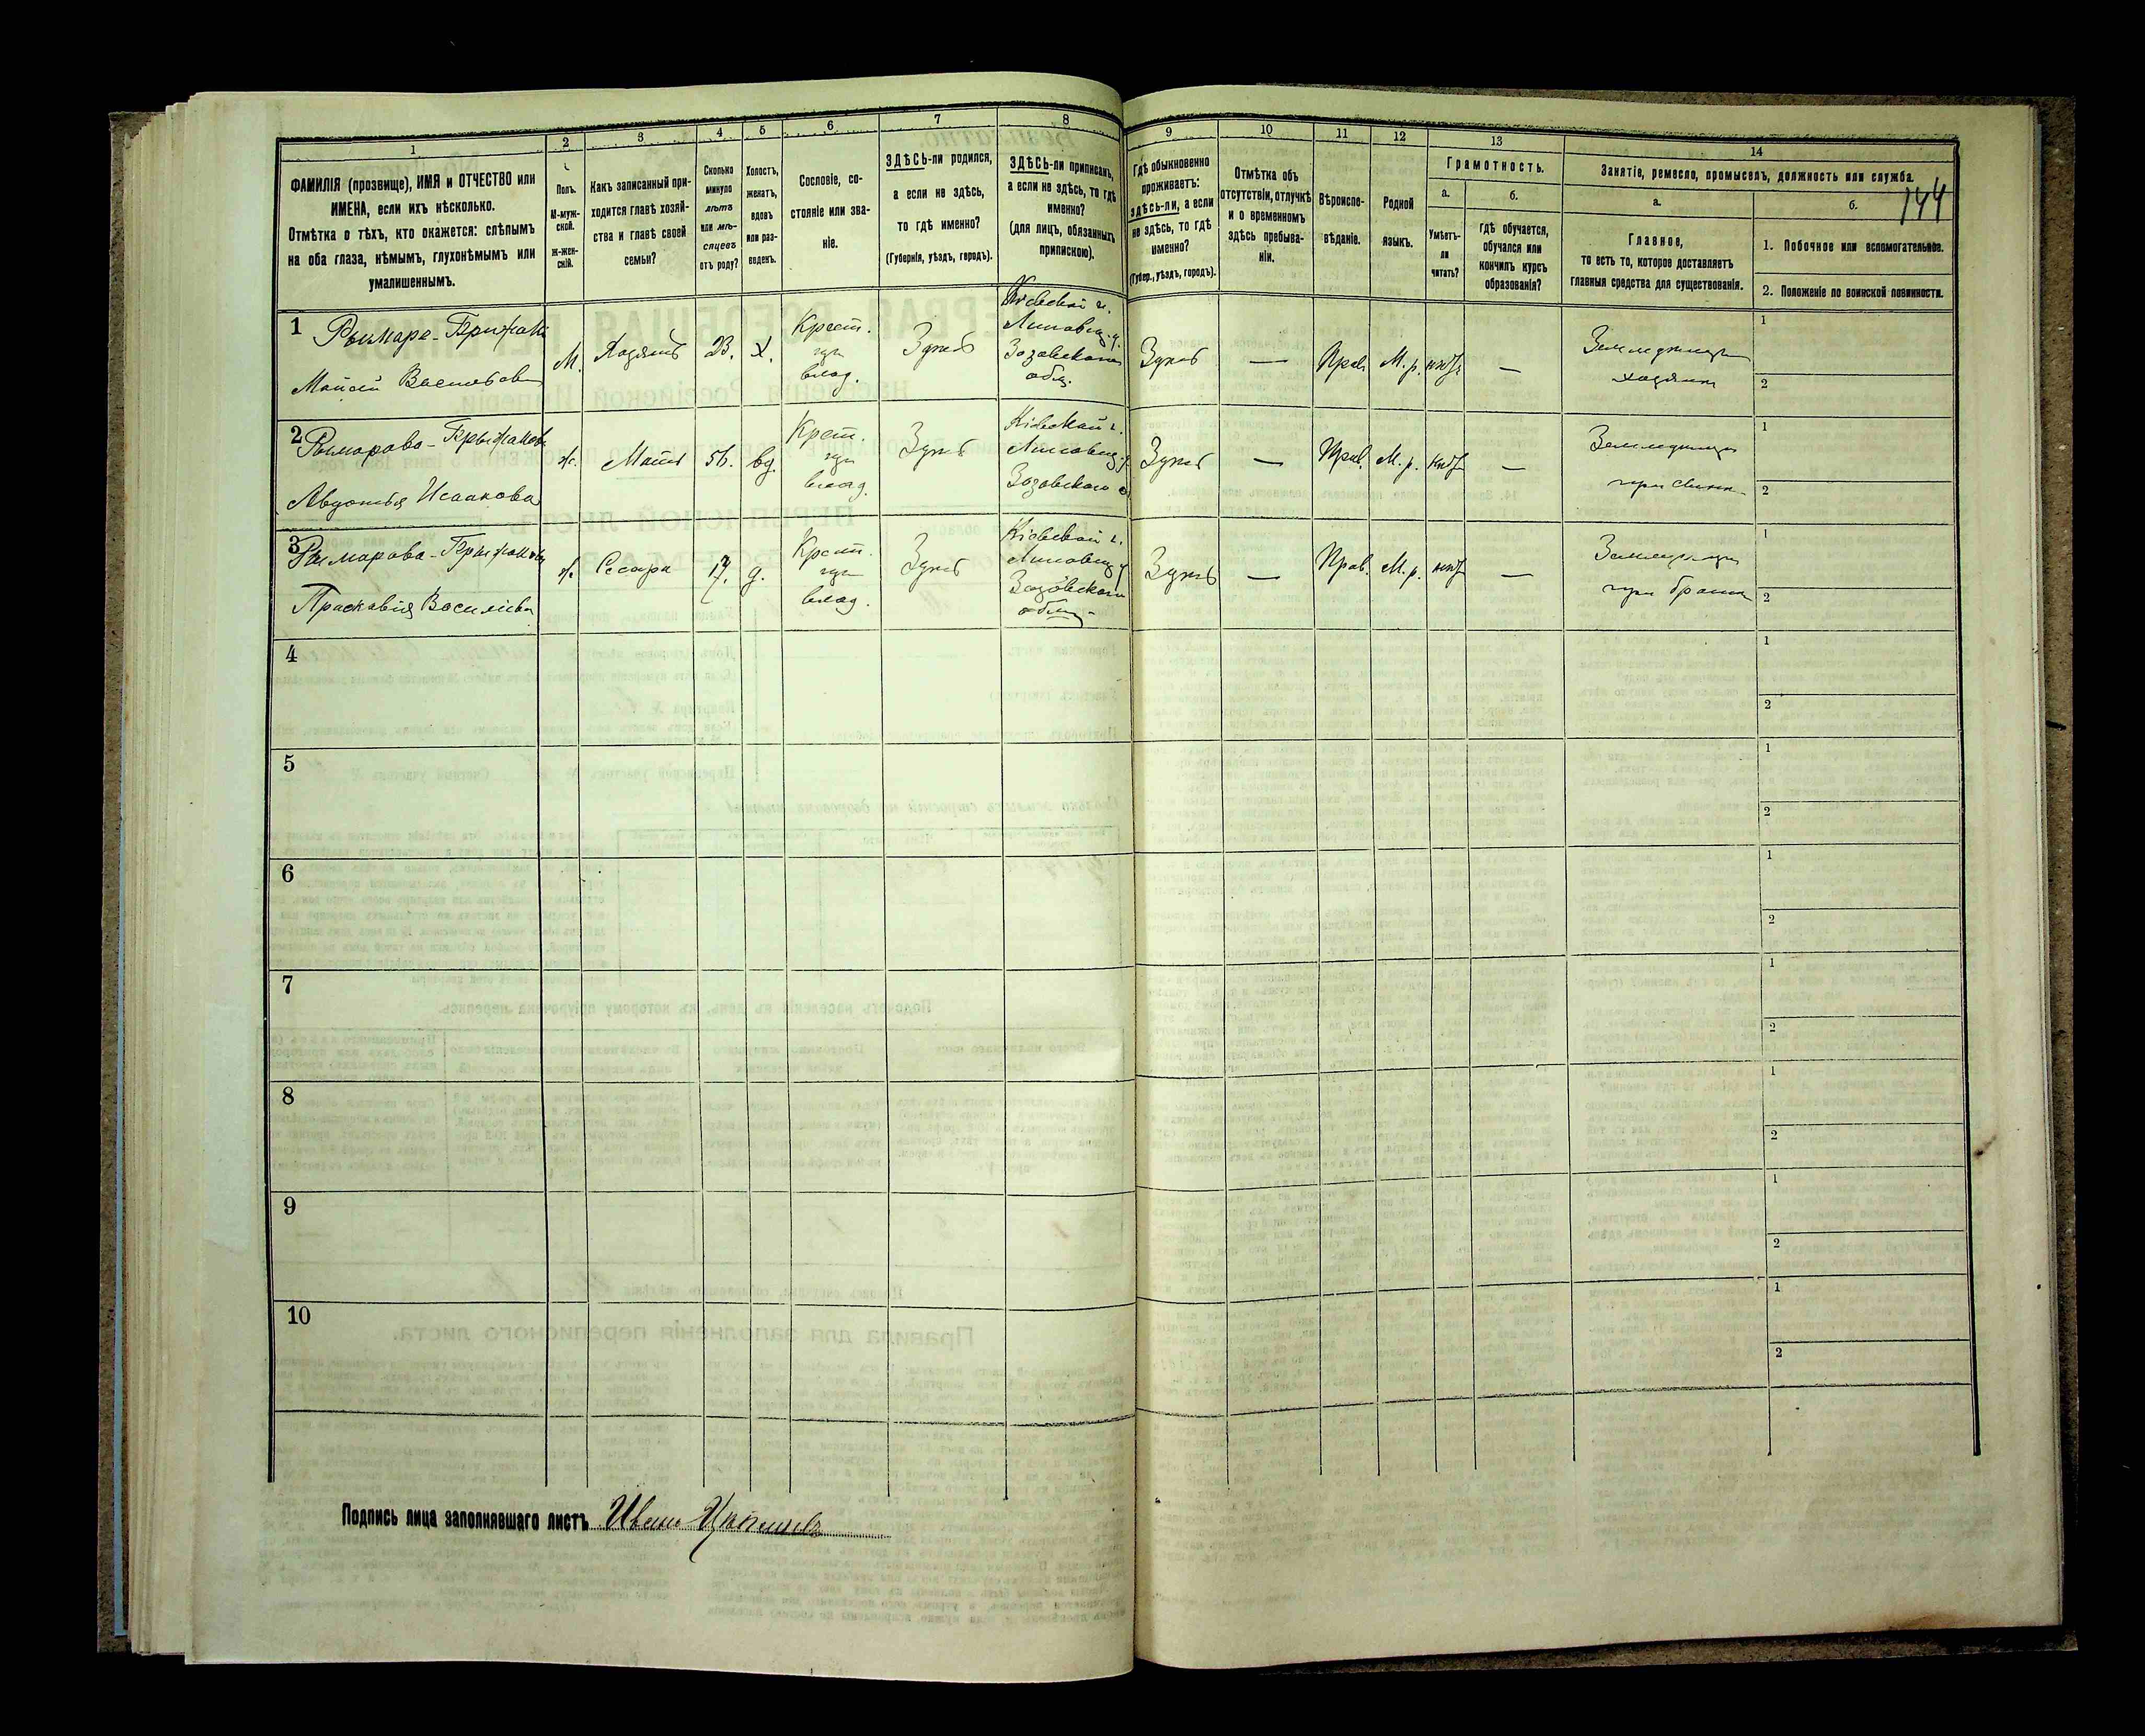 1
2
3
4
5
6
7
8
ФАМИЛІЯ (прозвище), ИМЯ и ОТЧЕСТВО или
ИМЕНА, если ихъ нѣсколько.
Отмѣтка о тѣхъ, кто окажется: слѣпымъ
на оба глаза, нѣмымъ, глухонѣмымъ или
умалишеннымъ.
Полъ.
М-муж-
ской.
Ж-жен-
скій.
Какъ записанный при-
ходится главѣ хозяй-
ства и главѣ своей
семьи?
Сколько
минуло
лѣтъ
или мѣ-
сяцевъ
отъ роду?
Холостъ,
женатъ,
вдовъ
или раз-
веденъ.
Сословіе, со-
стояніе или зва-
ніе.
ЗДѢСЬ-ли родился,
а если не здѣсь,
то гдѣ именно?
(Губернія, уѣздъ, городъ).
ЗДѢСЬ-ли приписанъ,
а если не здѣсь, то гдѣ
именно?
(для лицъ, обязанныхъ
припискою).
9
10
11
12
13
14
Гдѣ обыкновенно
проживаетъ:
здѣсь-ли, а если
не здѣсь, то гдѣ
именно?
(Губер., уѣздъ, городъ).
Отмѣтка объ
отсутствіи, отлучкѣ
и о временномъ
здѣсь пребыва-
ніи.
Вѣроиспо-
вѣданіе.
Родной
языкъ.
Грамотность.
а.
Умѣетъ-
ли
читать?
б.
гдѣ обучается,
обучался или
кончилъ курсъ
образованія?
Занятіе, ремесло, промыселъ, должность или служба.
а.
Главное,
то есть то, которое доставляетъ
главныя средства для существованія.
б.
144
1. Побочное или вспомогательное.
2. Положеніе по воинской повинности.
1
Моисей Васильевъ
М.
Хозяинъ
23.
Х.
Крест.
влад.
Здѣсь
Кіевской г.
Липовец. у.
Зозовскаго
общ.
Здѣсь
—
Прав.
М. р.
—
хозяинъ
1
2
2
Авдотья Исаакова
ж.
Мать
56.
вд.
Крест.
влад.
Здѣсь
Кіевской г.
Липовец. у.
Зозовскаго о
Здѣсь
—
Прав.
М. р.
—
при сынѣ
1
2
3
Праскавія Васильева
ж.
Сестра
17.
д.
Крест.
влад.
Здѣсь
Кіевской г.
Липовец. у
Зозовскаго
общ.
Здѣсь
—
Прав.
М. р.
—
при братѣ
1
2
4
1
2
5
1
2
6
1
2
7
1
2
8
1
2
9
1
2
10
1
2
Подпись лица заполнявшаго листъ Иванъ